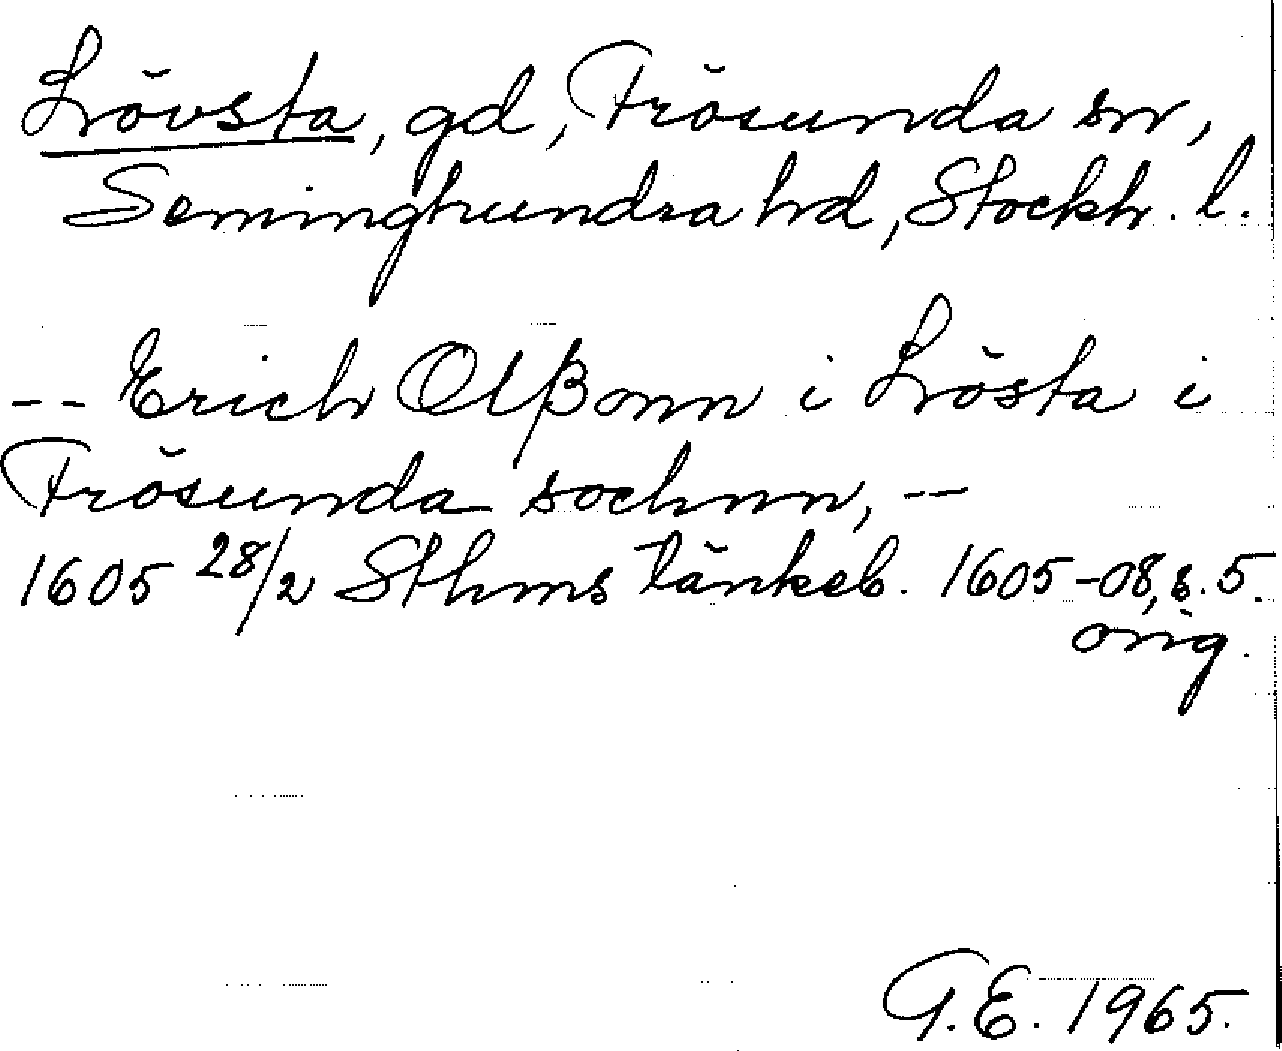 Lövsta, gd, Frösunda sn,
Seminghundra hd, Stockh. l.
-- Erich Olßonn i Lösta i
Frösunda sochnn, --
1605 28/2 Sthms tänkeb. 1605-08, s. 5.
orig.
G.E. 1965.